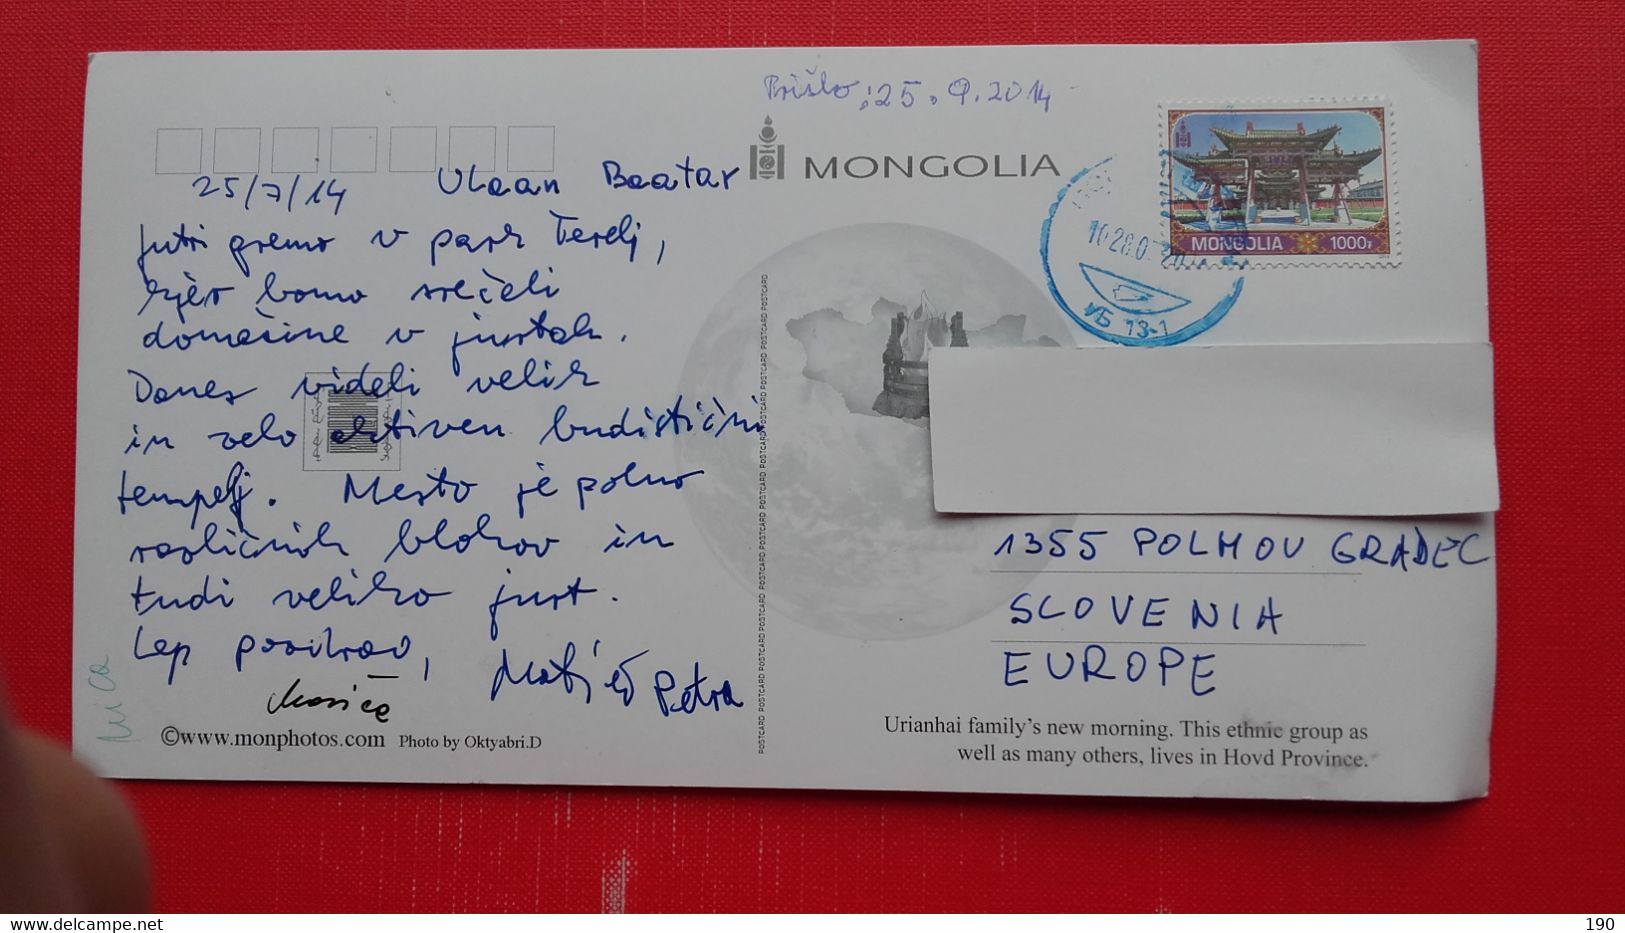 Prišlo: 25.9.2014
MONGOLIA
MONGOLIA 1000₮
УБ 13-1
25/7/14 Ulaan Baatar
Jutri gremo v park Terelj,
kjer bomo srečeli
domačine v jurtah.
Danes videli velik
in zelo aktiven budistični
tempelj. Mesto je polno
različnih blokov in
tudi veliko jurt.
Lep pozdrav,
Petra
©www.monphotos.com Photo by Oktyabri.D
POSTCARD POSTCARD POSTCARD POSTCARD POSTCARD POSTCARD POSTCARD POSTCARD POSTCARD POSTCARD POSTCARD
1355 POLHOV GRADEC
SLOVENIA
EUROPE
Urianhai family's new morning. This ethnic group as
well as many others, lives in Hovd Province.
delcampe.net
190